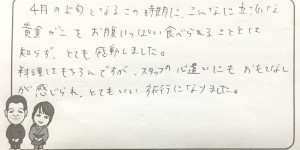 4月の上旬となるこの時期に、こんなに立派な
黄金ガニをお腹いっぱい食べられることとは
知らず、とても感動しました。
料理はもちろんですが、スタッフの心遣いにもおもてなし
が感じられ、とてもいい旅行になりました。